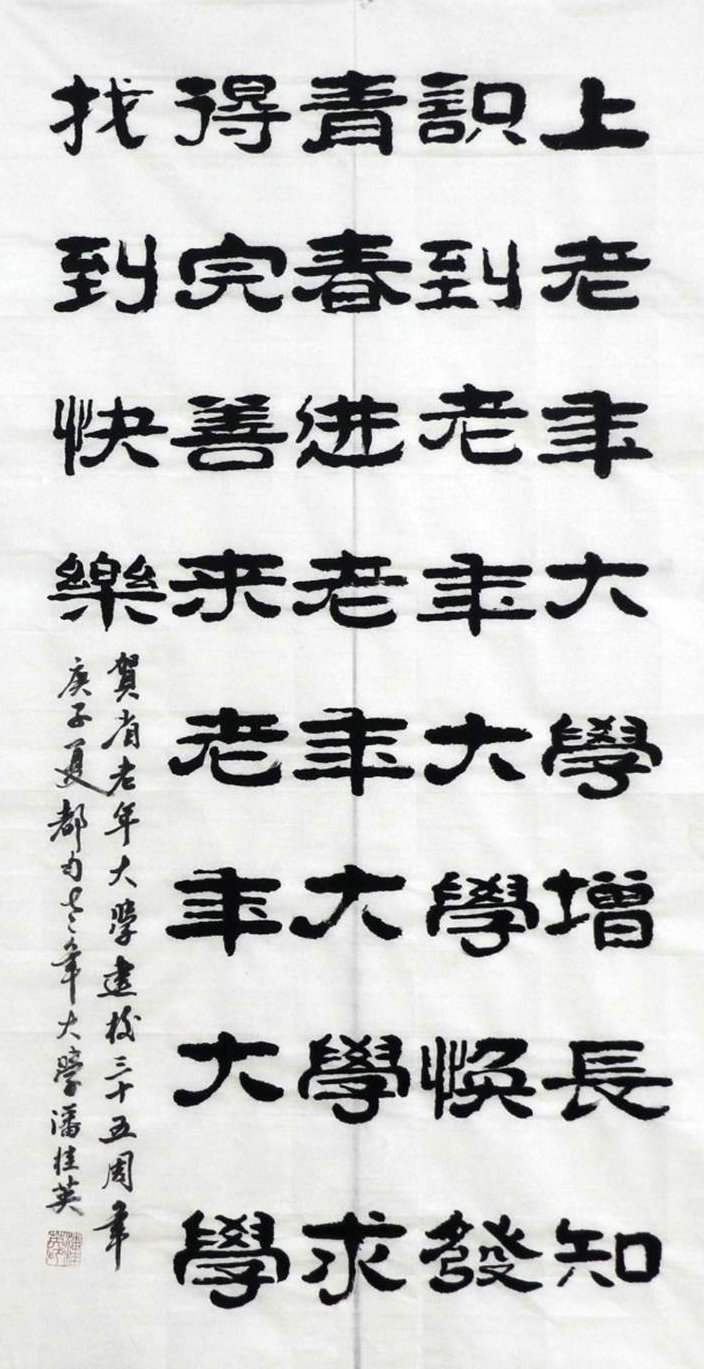 上老年大學增長知
識到老年大學焕發
青春进老年大學求
得完善来老年大學
找到快樂
賀省老年大學建校三十五周年
庚子夏都匀老年大學潘桂英